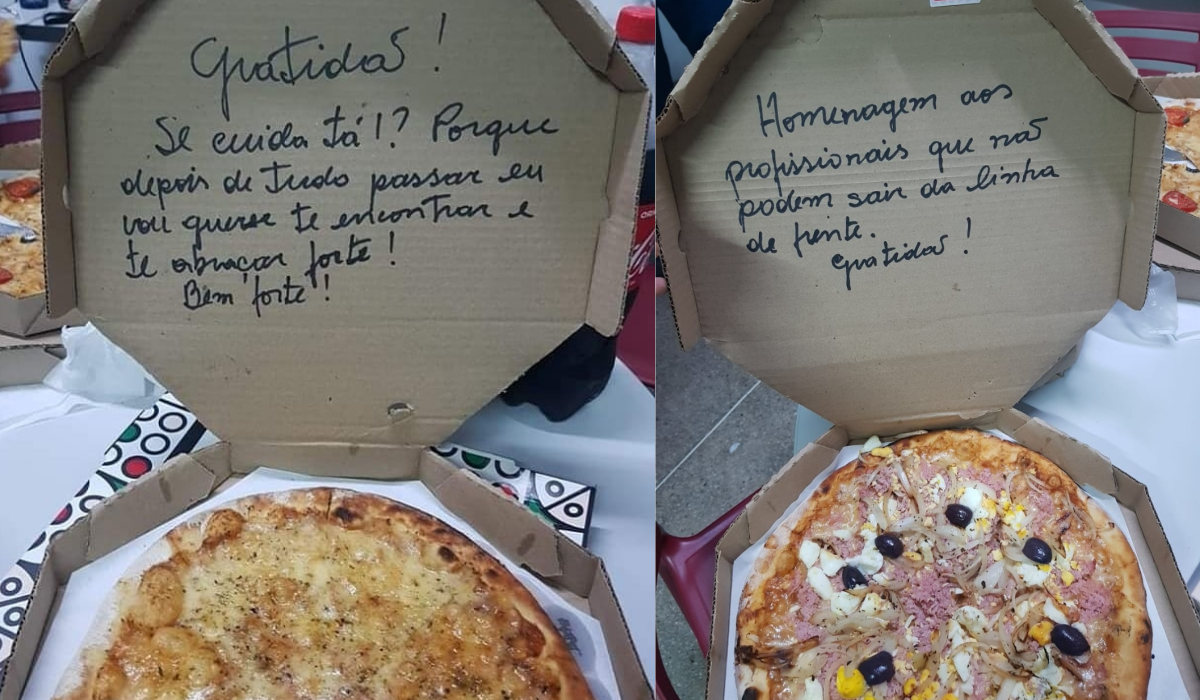 Gratidão!
Se cuida tá!? Porque
depois de tudo passar eu
vou querer te encontrar e
te abraçar forte!
Bem forte!
Homenagem aos
profissionais que não
podem sair da linha
de frente.
Gratidão!